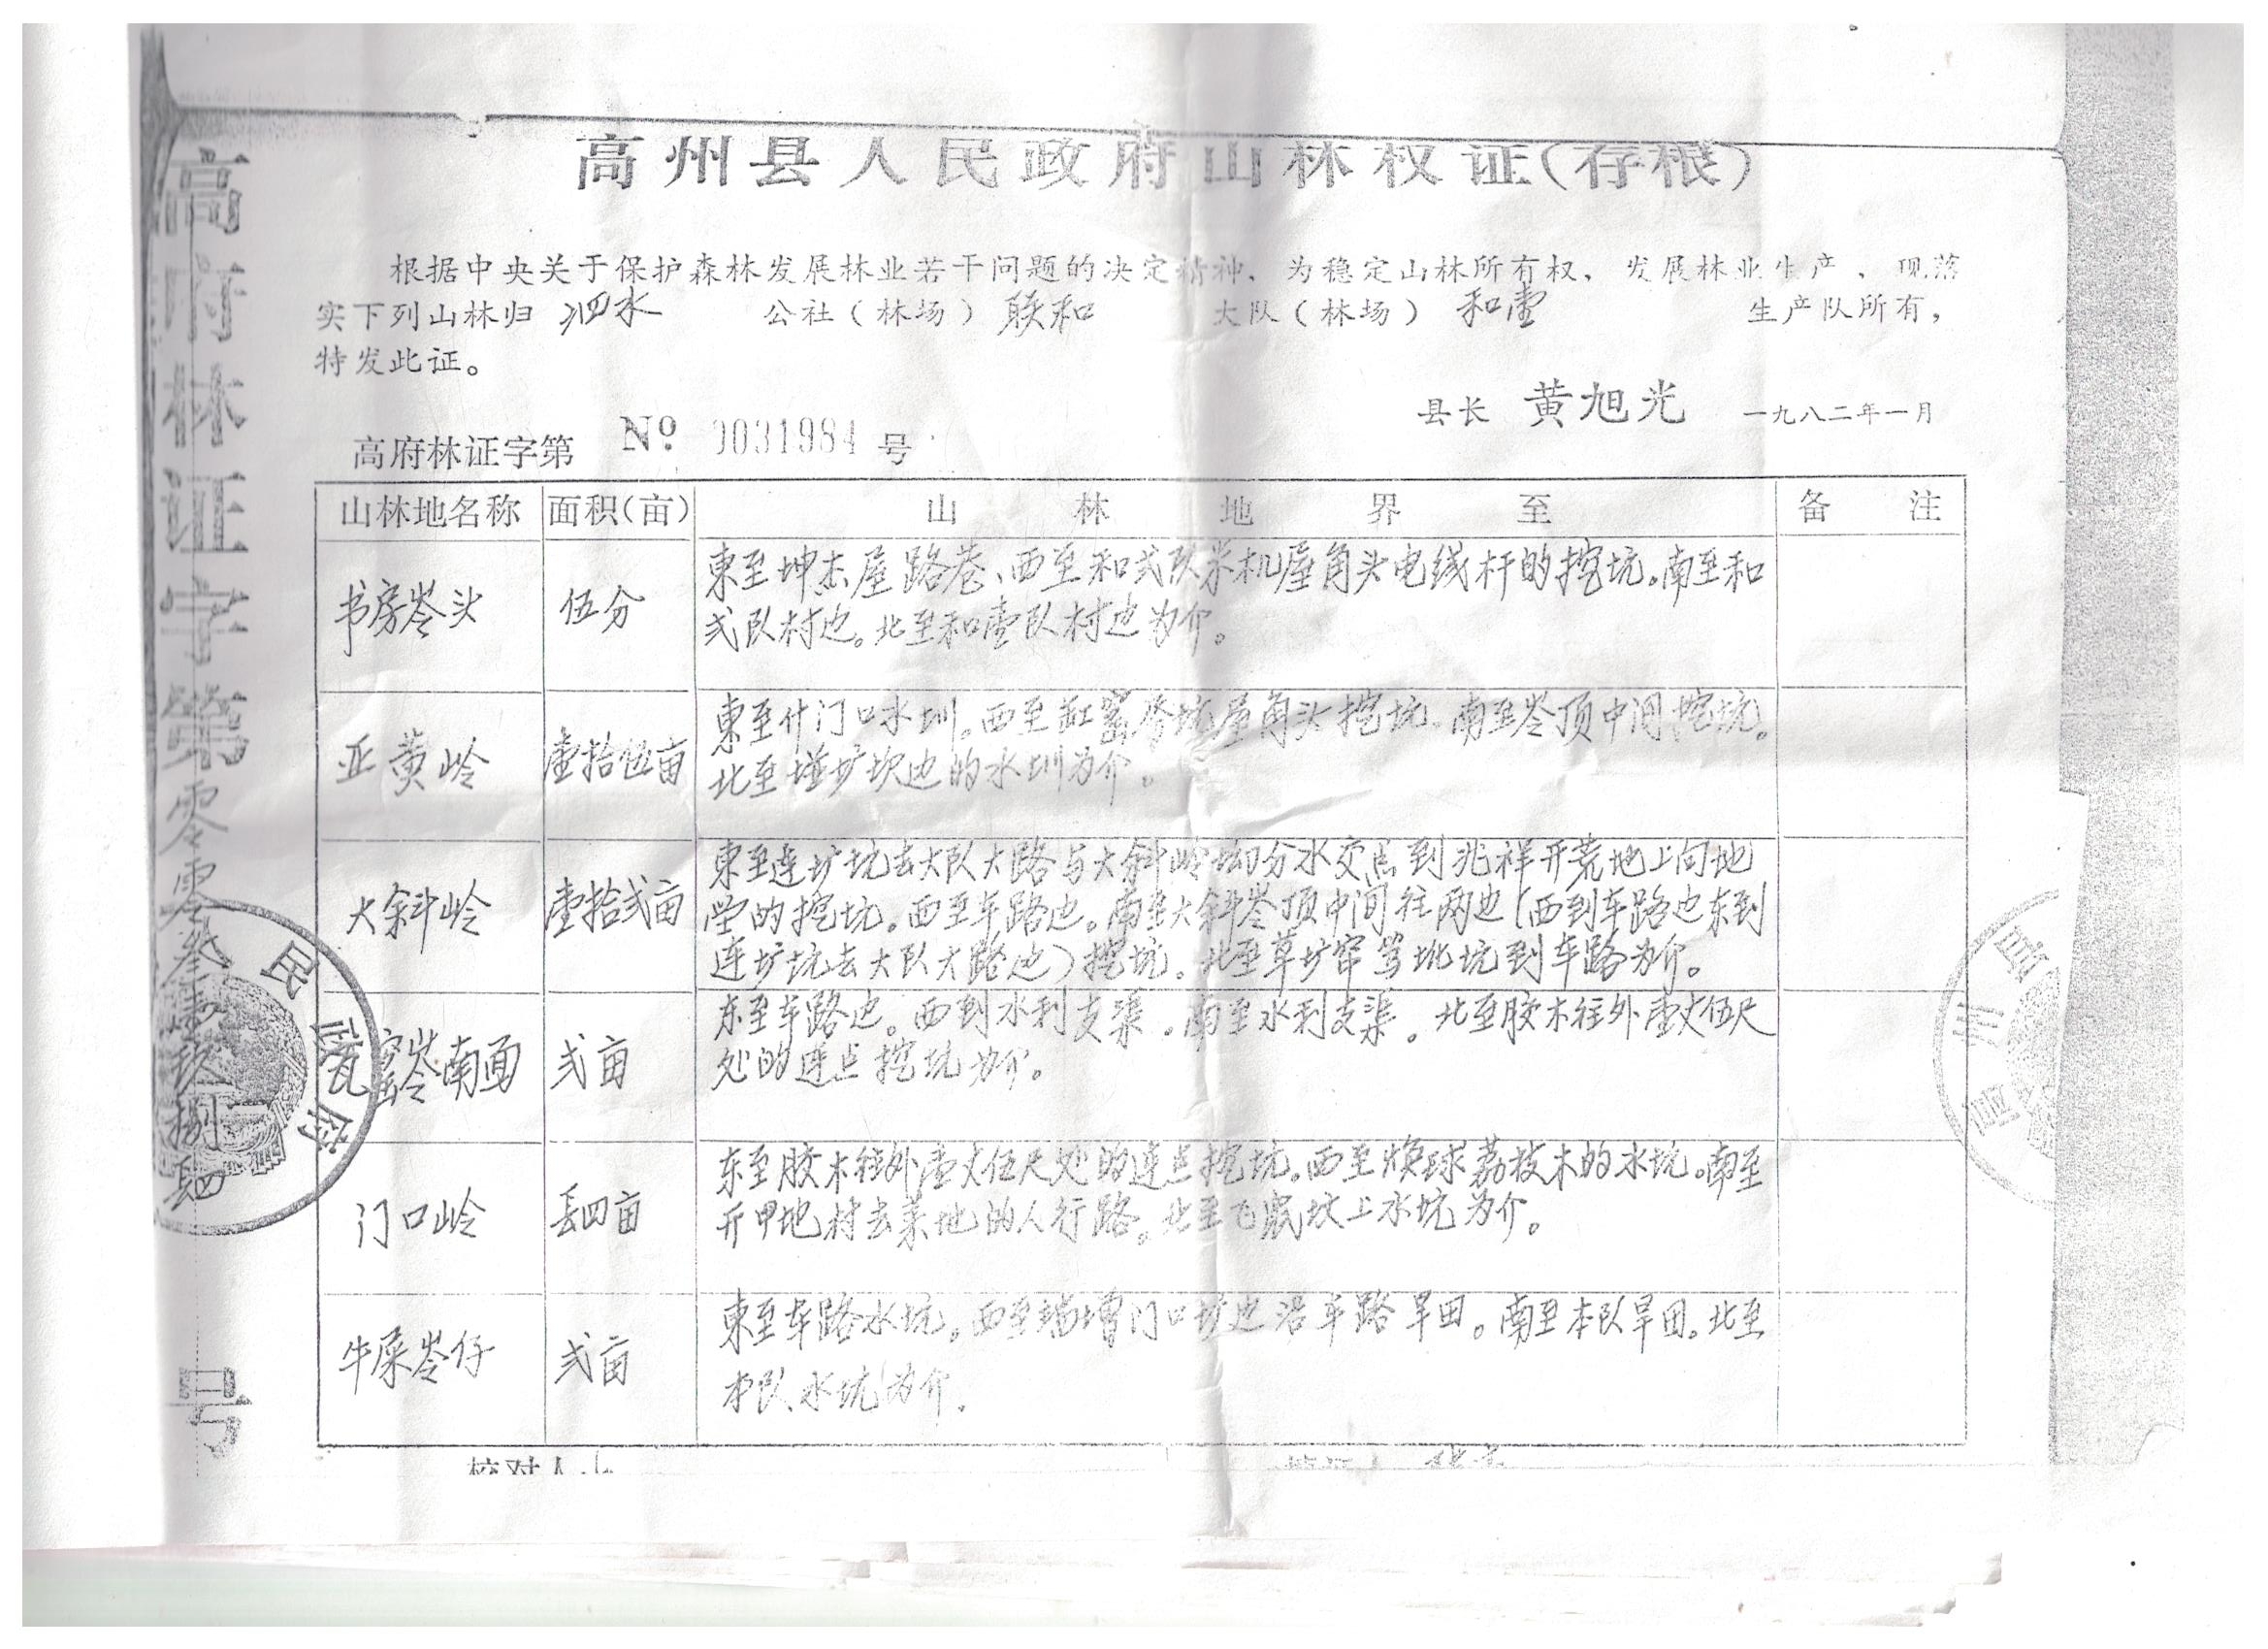 高州县人民政府山林权证(存根)
根据中央关于保护森林发展林业若干问题的决定精神、为稳定山林所有权，发展林业生产、现落
实下列山林归 泗水 公社（林场）联和 大队（林场）和壹 生产队所有，
特发此证。
县长 黄旭光 一九八二年一月
高府林证字第 № 0031984 号
山林地名称 面积(亩) 山林地界至 备注
书房岺头 伍分 東至坤杰屋路巷、西至和弍队米机屋角头电线杆的挖坑。南至和
弍队村边。北至和壹队村边为介。
亚黄岭 壹拾伍亩 東至什门口水圳。西至缸窰坑屋角头挖坑。南至岺顶中间挖坑。
北至塘圹坎边的水圳为介。
大斜岭 壹拾弍亩 東至连圹坑去大队大路与大斜岭坳分水交点到兆祥开荒地上向地
的挖坑。西至车路边。南至大斜岺顶中间往两边(西到车路边东到
连圹坑去大队大路边)挖坑。北至草圹坑到车路为介。
瓦窑岺南面 弍亩 东至车路边。西到水利支渠。南至水利支渠。北至胶木往外壹丈伍尺
处的连点挖坑为介。
门口岭 四亩 东至胶木往外壹丈伍尺处的连点挖坑。西至焕球荔枝木的水坑。南至
开甲地村去菜地的人行路。北至飞鼠坟上水坑为介。
牛屎岺仔 弍亩 東至车路水坑。西至瑞增门口圹边沿车路旱田。南至本队旱田。北至
本队水坑为介。
校对人
高府林证字第零零叁壹玖捌四号
民政府